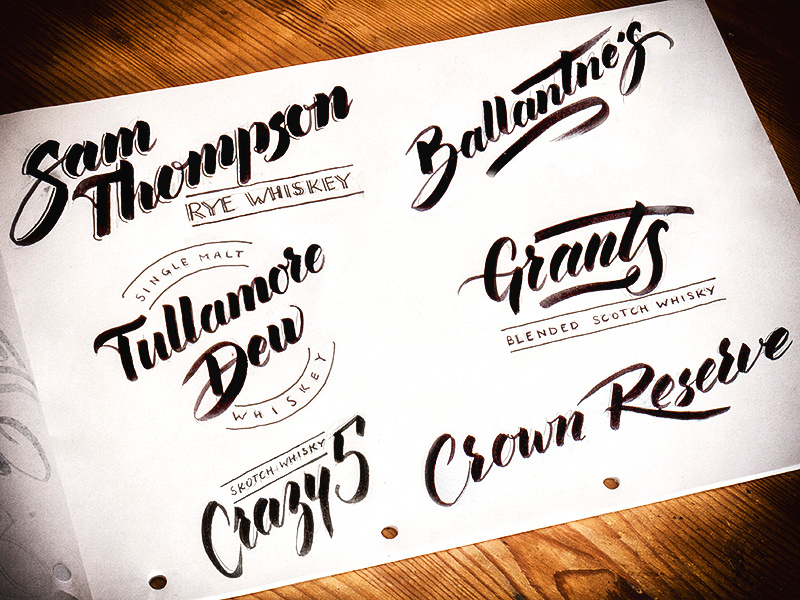 Sam
Thompson
RYE WHISKEY
Ballantne's
SINGLE MALT
Tullamore
Dew
WHISKEY
Grants
BLENDED SCOTCH WHISKY
SKOTCH WHISKY
Crazy 5
Crown Reserve